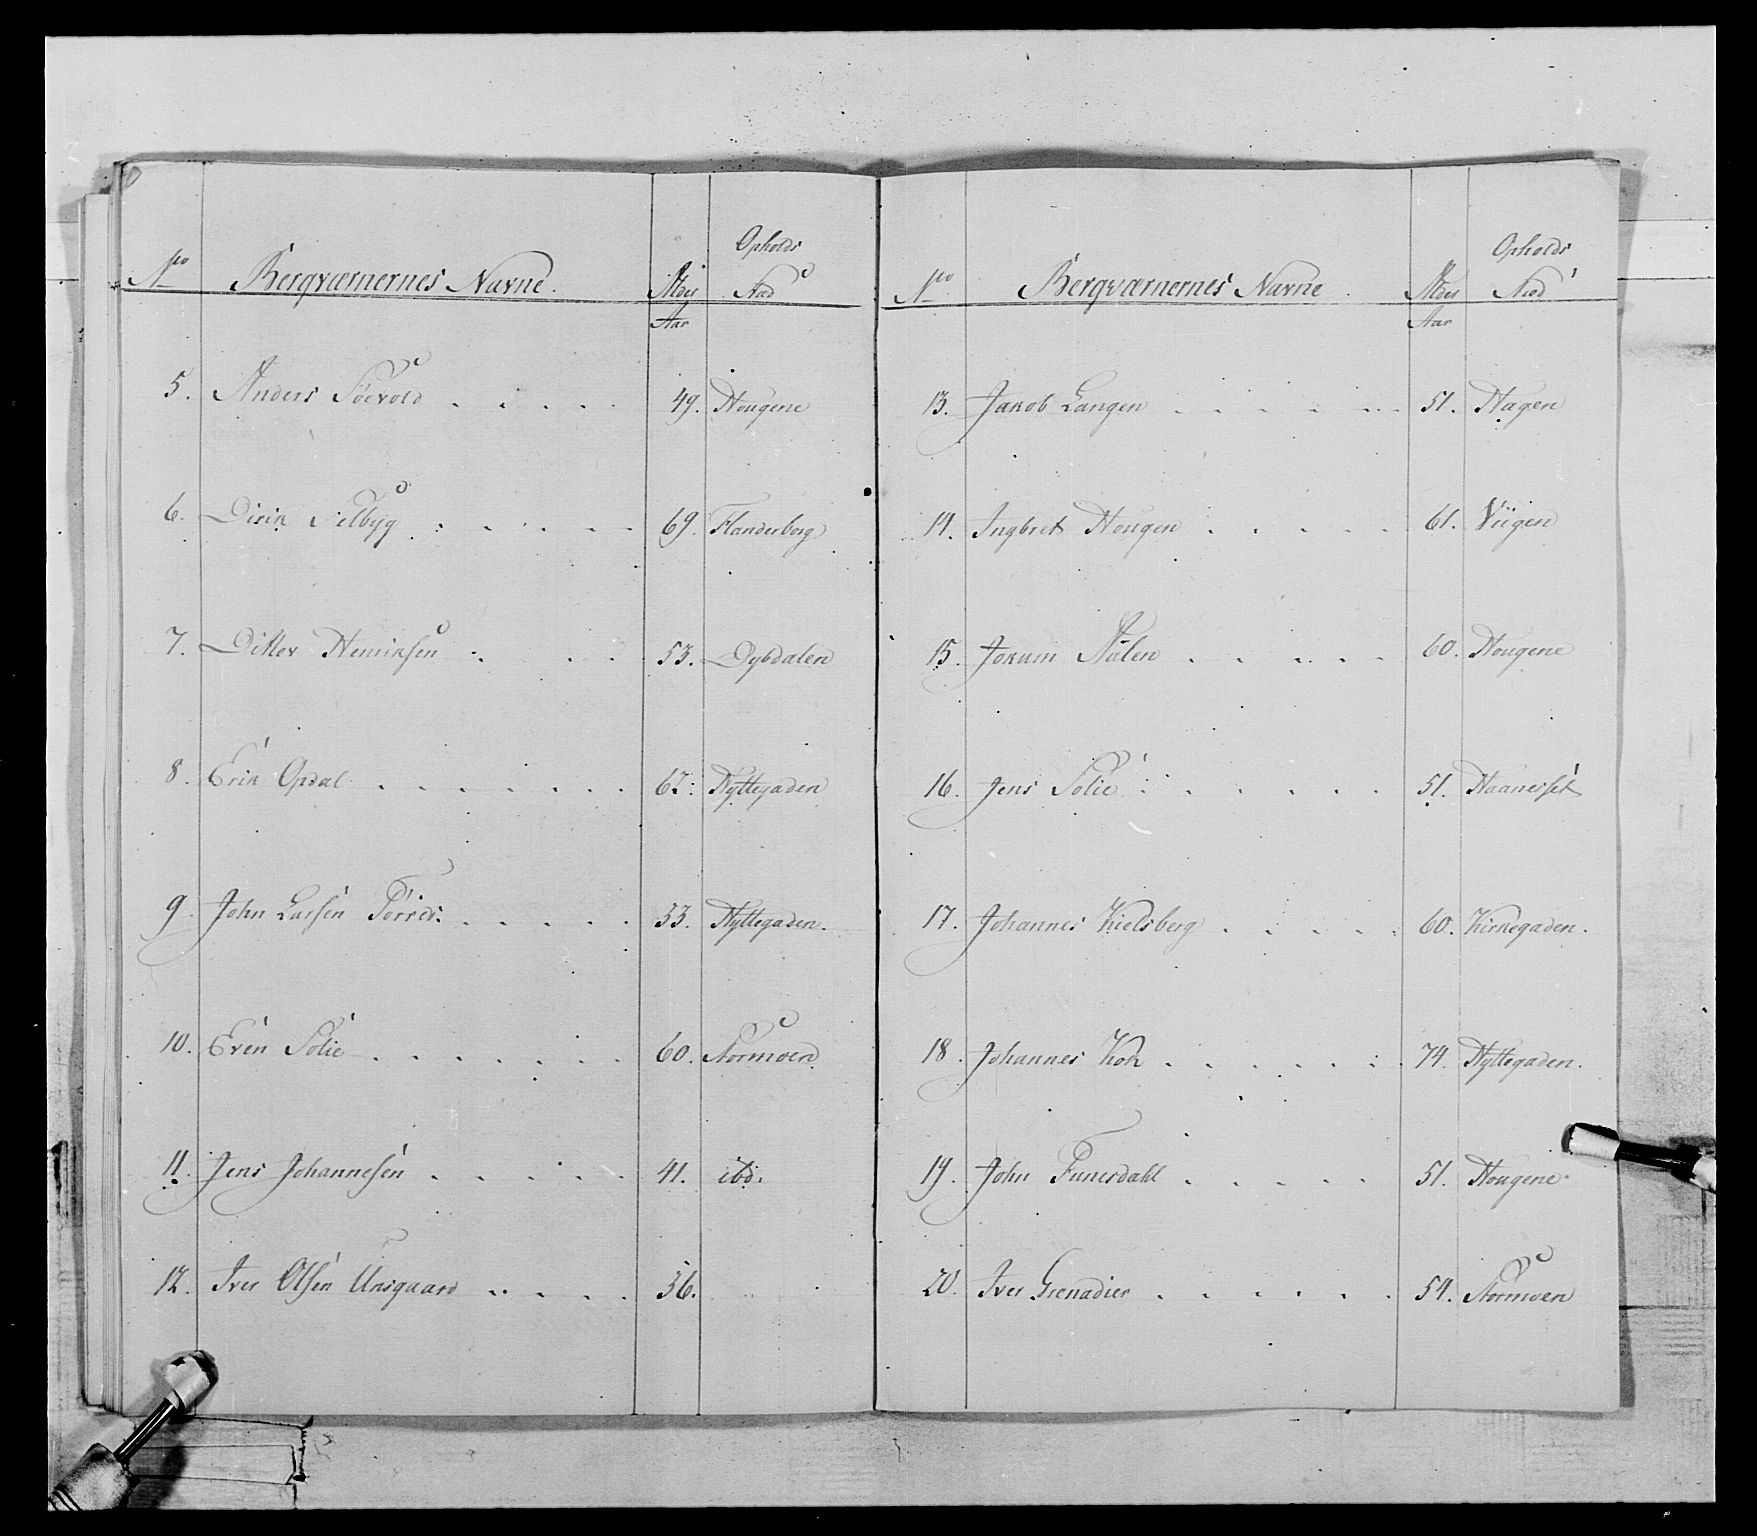 Opholds
No Bergværnernes Navne. Alder Stæd
Aar
5. Anders Söevold . . . . . 49. Hougene
6. Dirik Selbyg . . . . . 69. Flanderborg
7. Ditlev Henriksen . . . . 53. Dybdalen
8. Erik Opdal . . . . . . . 62. Hyttegaden
9. John Larsen Törres. . . . . . 53. Hyttegaden.
10. Even Solie . . . . . . . 60. Stormoen
11. Jens Johannesen . . . . . 41. ibd.
12. Iver Olsen Aasgaard . . . . 36.
Opholds
No Bergværnernes Navne. Alder Stæd
Aar
13. Jakob Langen . . . . . . 51. Hagen
14. Ingbret Hougen . . . . . 61. Viigen
15. Jokum Stålen . . . . . . 60. Hougene
16. Jens Solie . . . . . . . 51. Haaneset
17. Johannes Kielsberg . . . . . 60. Kirkegaden.
18. Johannes Kok . . . . . . 74. Hyttegaden.
19. John Funesdahl . . . . . 51. Hougene.
20. Iver Grenadier . . . . . . 54. Stormoen